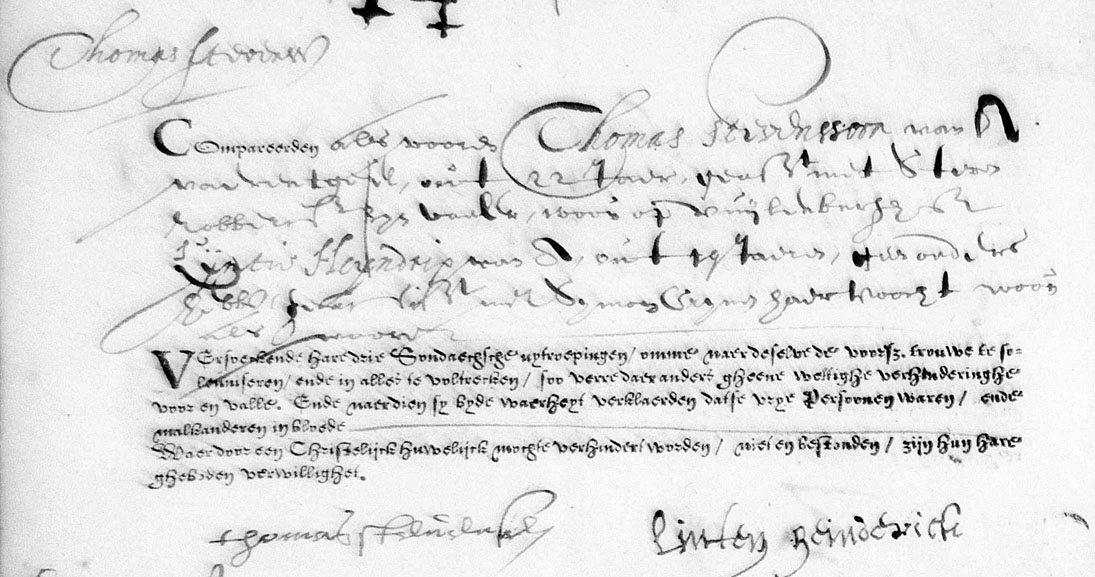 Thomas Steven
Compareerden als vooren Thomas Stevenssoon van A
varentgesel, out 22 Jaer, geast met Steven
Robberts zijn vader, woon op
Lijntie Heyndrix van A, out 19 Jaeren, geen ouders
hebb. met Symon haer Voocht woon
als vooren
VErsoeckende hare drie Sondaechsche uytroepingen / omme naer deselve de voorsz. trouwe te so-
lemniseren / ende in alles te voltrecken / soo verre daer anders gheene wettighe verhinderinghe
voor en valle. Ende naerdien sy byde waerheyt verklaerden datse vrye Persoonen waren / ende
malkanderen in bloede
Waerdoor een Christelijck huwelijck mochte verhindert worden / niet en bestonden / zijn hun hare
gheboden verwillighet.
thomas stevensen
Linten Heinderick